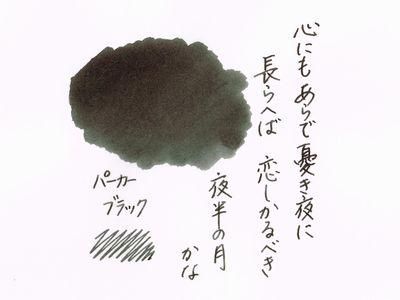 心にもあらで憂き夜に
長らへば 恋しかるべき
夜半の月
かな
パーカー
ブラック